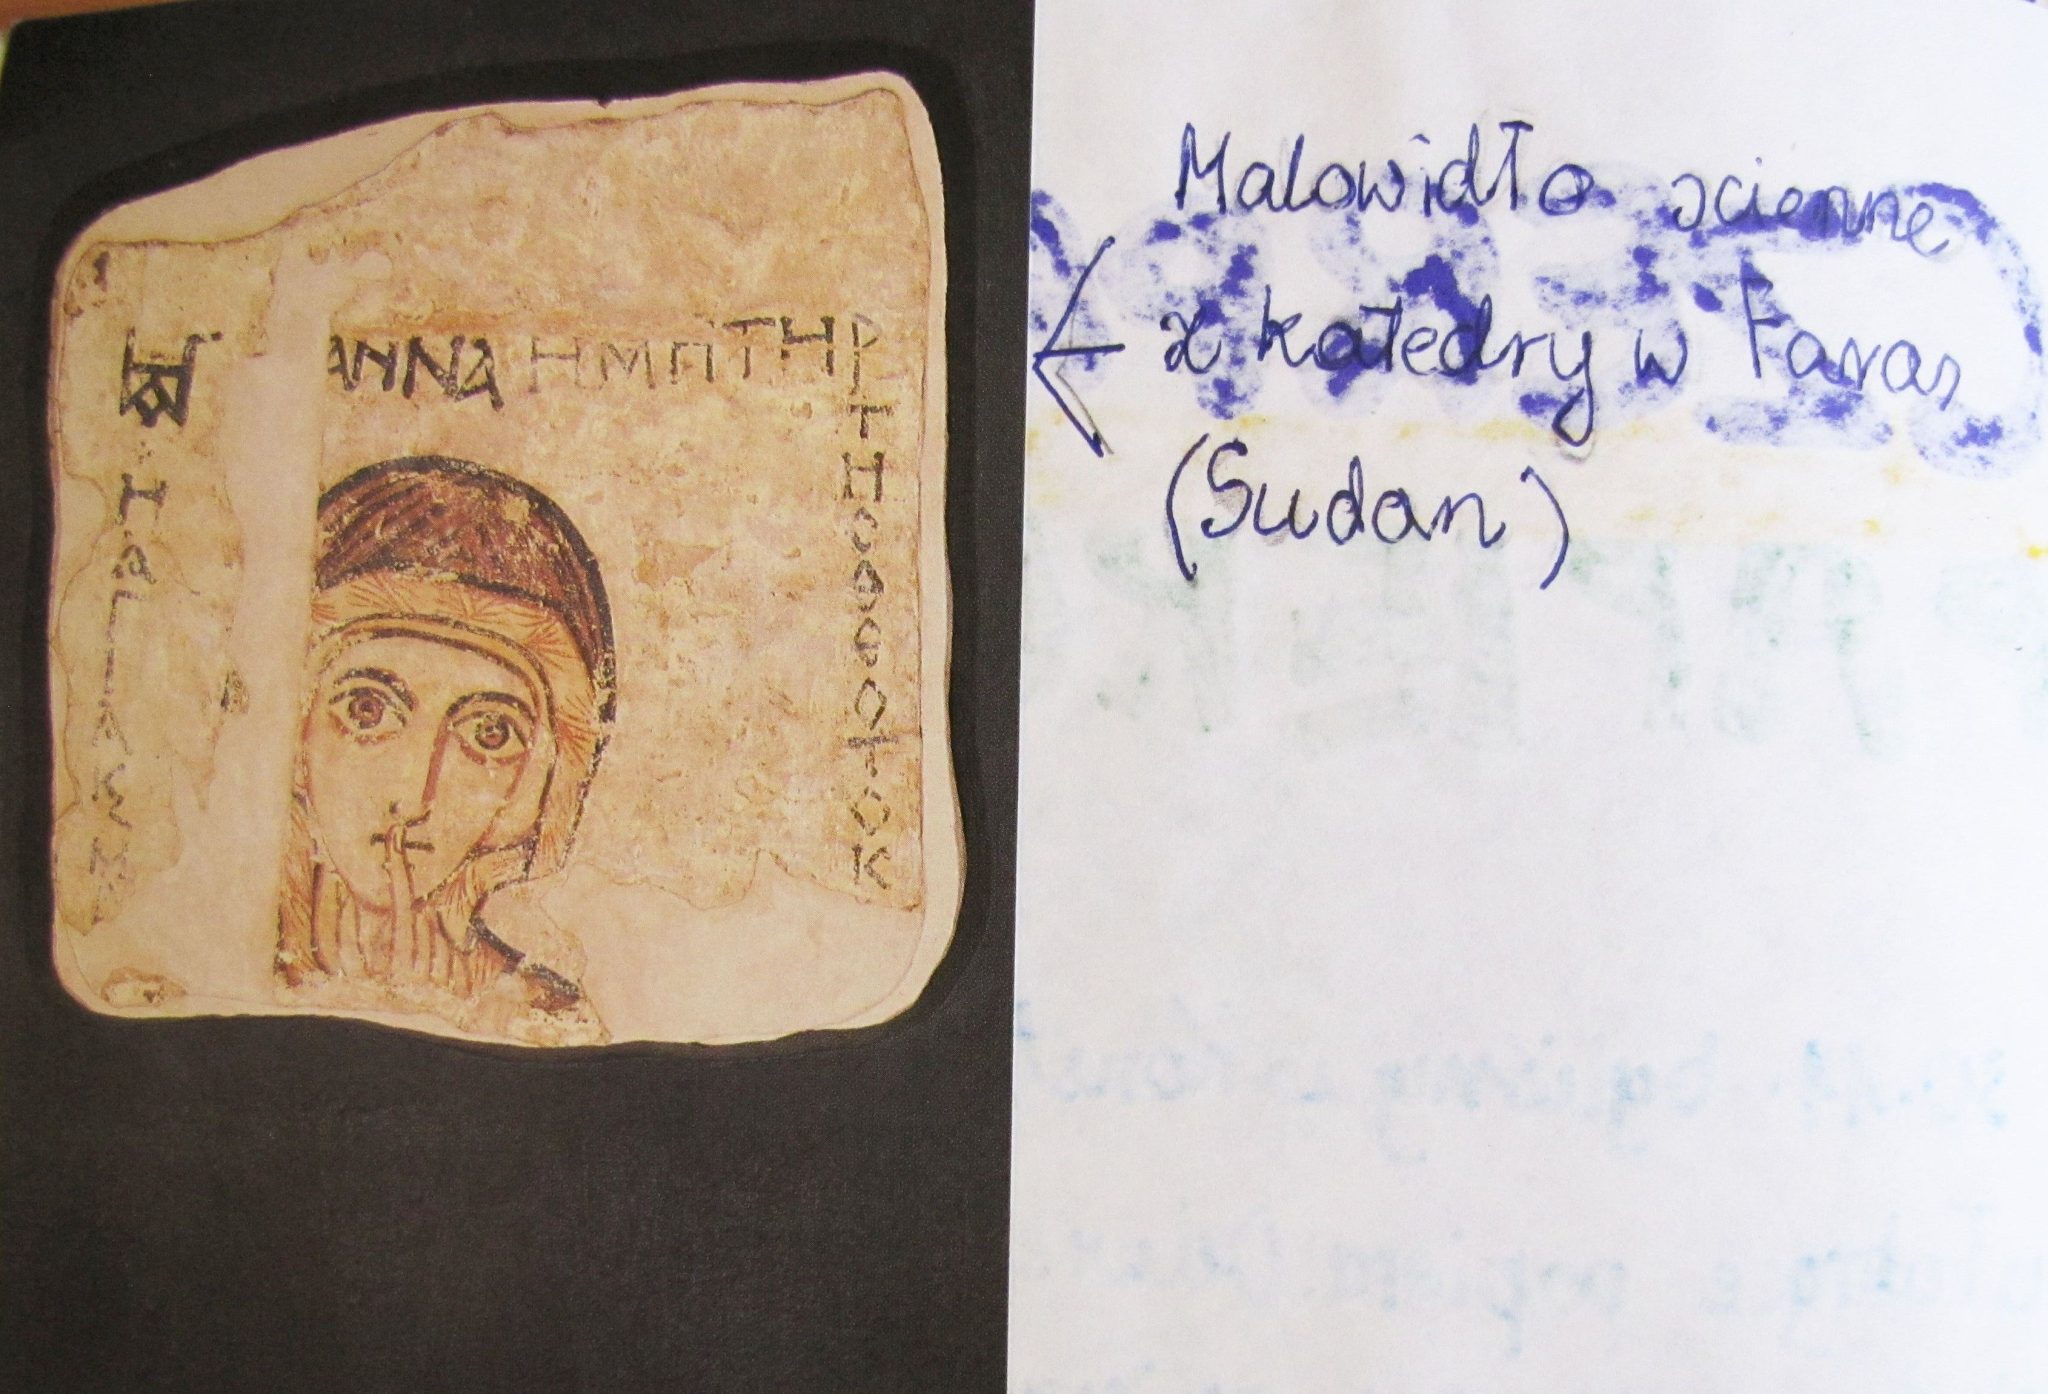 ΑΝΝΑ ΗΜΗΤΗΡ
ΤΗCΘΕΟΤΟΚ
ΑΓΙΑ
Malowidło scienne
z katedry w Faras
(Sudan)